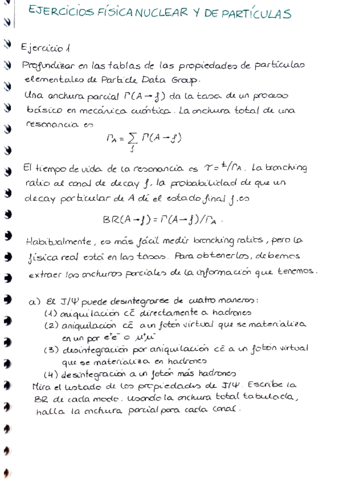 EJERCICIOS FÍSICA NUCLEAR Y DE PARTÍCULAS
Ejercicio 1
Profundizar en las tablas de las propiedades de partículas
elementales de Particle Data Group.
Una anchura parcial Γ(A→f) da la tasa de un proceso
básico en mecánica cuántica. La anchura total de una
resonancia es
Γ_A = Σ_f Γ(A→f)
El tiempo de vida de la resonancia es τ=ħ/Γ_A. La branching
ratio al canal de decay f, la probabilidad de que un
decay particular de A dé el estado final f, es
BR(A→f) = Γ(A→f)/Γ_A.
Habitualmente, es más fácil medir branching ratios, pero la
física real está en las tasas. Para obtenerlos, debemos
extraer las anchuras parciales de la información que tenemos.
a) El J/Ψ puede desintegrarse de cuatro maneras:
(1) aniquilación cc̄ directamente a hadrones
(2) aniquilación cc̄ a un fotón virtual que se materializa
en un par e⁺e⁻ o μ⁺μ⁻
(3) desintegración por aniquilación cc̄ a un fotón virtual
que se materializa en hadrones
(4) desintegración a un fotón más hadrones
Mira el listado de las propiedades de J/Ψ. Escribe la
BR de cada modo. Usando la anchura total tabulada,
halla la anchura parcial para cada canal.